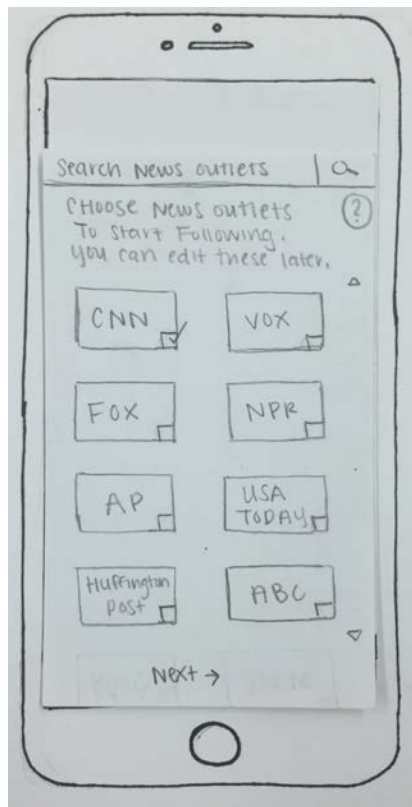 Search News outlets
CHOOSE News outlets
?
To Start Following.
you can edit these later.
CNN
VOX
FOX
NPR
AP
USA
TODAY
Huffington
Post
ABC
Next →